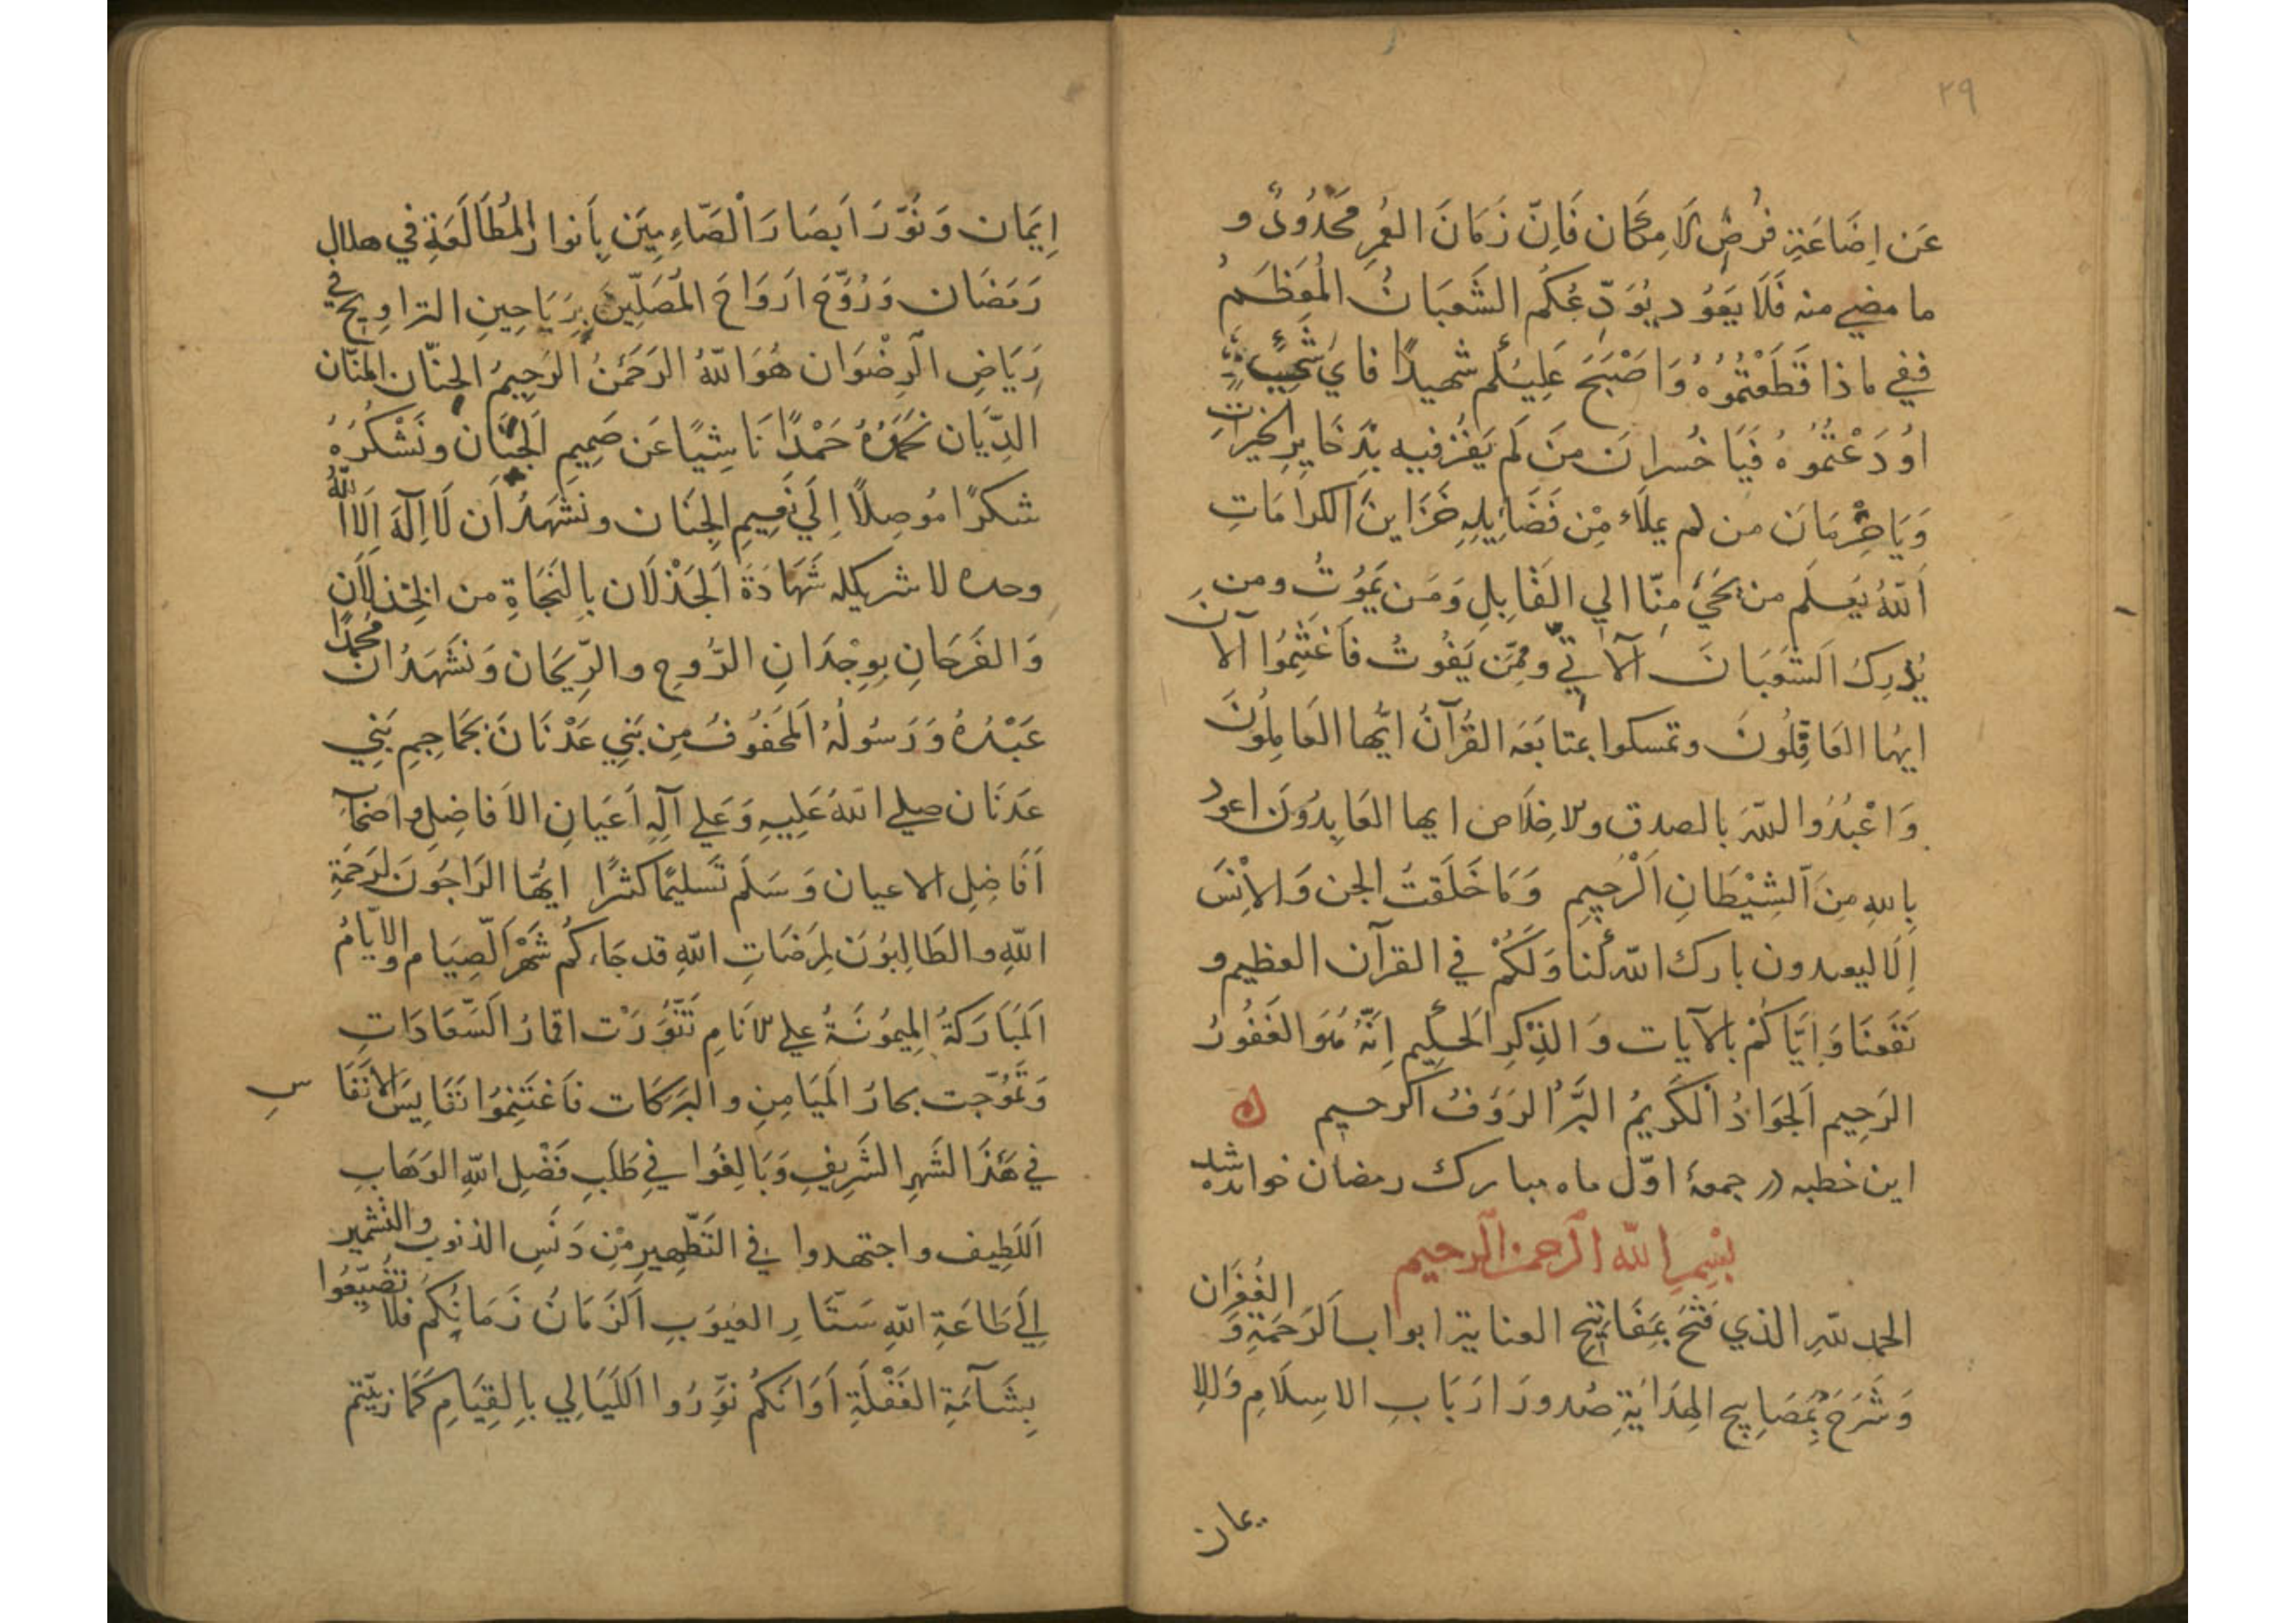 ٢٩
عَن اِضَاعَةِ فُرَصِ الامِكَان فَاِنّ زَمَانَ العُمِر مَحْدُودٌ و
ما مضي منه فَلَا يَعَوُد يُوَدِّعُكم الشَعَبَانُ المُعَظمُ
ففي ماذا قَطَعْتُمُوُهُ وَاصْبَحَ عَلِيُكم شهيدًا فاي شَيٍ
اوُدَعْتُمُوهُ فَيَا خُسرانَ مَن لَم يَفُز فيه بِذَخَايِرِ الخيراتِ
وَيَا حِرْمَانَ من لم يملاء مِن فَضَايِلِهِ خَزَاينَ الكرامَاتِ
اَللهُ يَعلَم من يحَيُ مِنّا الي القَابِلِ وَمَن يَموُتُ ومن
يُدرِكُ الشَعَبَانَ الآتي وممَّن يَفُوتُ فَاغتنِمُوا الآنَ
ايهُا العَاقِلُونَ وتمسكوا بمتابَعَه القُرآنُ ايُّها العَامِلُونَ
وَاعْبُدُوا اللهَ بالصدق والاخِلَاص ايها العَابِدُونَ اعوذ
بِاللهِ مِنَ الشِيْطَانِ الرَجِيمِ وَمَا خَلَقتُ الجن وَالانِسَ
اِلَّا ليعبدون بارك الله لَنا وَلَكُمْ في القرآن العظيم و
نَفَعنَا وَاِيَّاكُمْ بالآيات وَالذِكرِ الحَكِيم اِنّهُ هُوَ الغَفُورُ
الرَحِيم اَلجَوَادُ الكَرِيمُ البَرُّ الرَوَفُ الرحيم ه
اين خطبه در جمعهٔ اوّل ماه مبارك رمضان خوانده شد
بِسْمِ اللهِ الرَحمن الرحيم
الحمد للهِ الذي فَتَحَ بِمَفَاتِيح العناية ابواب الرَحمَةِ وَ الغُفرَان
وَشَرَحَ بِمَصَابِيح الهِدَايَةِ صُدورَ ارَبَابِ الاسِلَامِ وَالا
يمان
اِيمَان وَنَوّرَ ابَصَارَ الصّاءِمِيَن بِاَنوار المُطَالَعَةِ في هلال
رَمَضَان وَرَوَّحَ ارَوَاحَ المُصَلّينَ بِرَيَاحِينِ التراوِيح في
رِيَاضِ الرِضْوَان هُوَ اللهُ الرَحَمنُ الرَحِيمُ الحنّان المَنّان
الدِيَّان نَحمَدُهُ حَمْدًا نَاشِيًا عَن صَمِيمِ الجَنَان ونَشْكُرُهُ
شكرًا مُوصِلًا اِلَي نَعِيمِ الجِنَان ونَشَهَدُ اَن لَا اِلَهَ اِلَّا اللهُ
وحده لا شريكله شَهَادَةَ الجَذْلَان بِالنَجَاةِ من الخِذلَان
وَالفَرَحَانِ بِوِجْدَانِ الرُّوحِ والرِّيحَان وَنَشَهَدُ ان مُحمدًا
عَبْدُهُ وَرَسُولُهُ المَحَفُوفُ مِن بَنِي عَدْنَانَ بجَمَاجِمِ بَنِي
عَدنَان صلي اللهُ عَلِيهِ وَعَلي آلِهِ اَعيَانِ الافاضِلِ واصْحَا
اَفَاضِلِ الاعيان وَسَلم تَسليمًا كثرًا ايهُّا الرَاجُونَ لرَحَمَةِ
اللهِ والطَالِبُونَ لِمَرضَاتِ اللهِ قد جَاءكُم شَهْرُ الصِيَام والايّامُ
المَبُاَركَةُ المَيِموُنَةُ علي الانَامِ تَنَّورَت اقمارُ السَّعَادَاتِ
وَتَموّجَت بحارُ المَيَامِنِ والبَرَكَات فَاغتَنِموُا نَفَايِسَ الانَفَا سِ
في هَذَا الشَهرِ الشَرِيفِ وَبَالِغُوا فِي طَلَبِ فَضْلِ اللهِ الوَهَابِ
اللَطِيف واجتهدوا في التَطّهِيرِ مِن دَنَسِ الذنوب والتشمير
اِلَي طَاعَةِ اللهِ سَتّارِ العيُوَبِ الزَمَانُ زَمَانُكم فلا تُضَيِّعُوا
بِشَآمَةِ الغَفْلَةِ اَوَانَكُم نَوِّرُوا اللَيَالي بالِقِيَامِ كَمَا زيّنتم